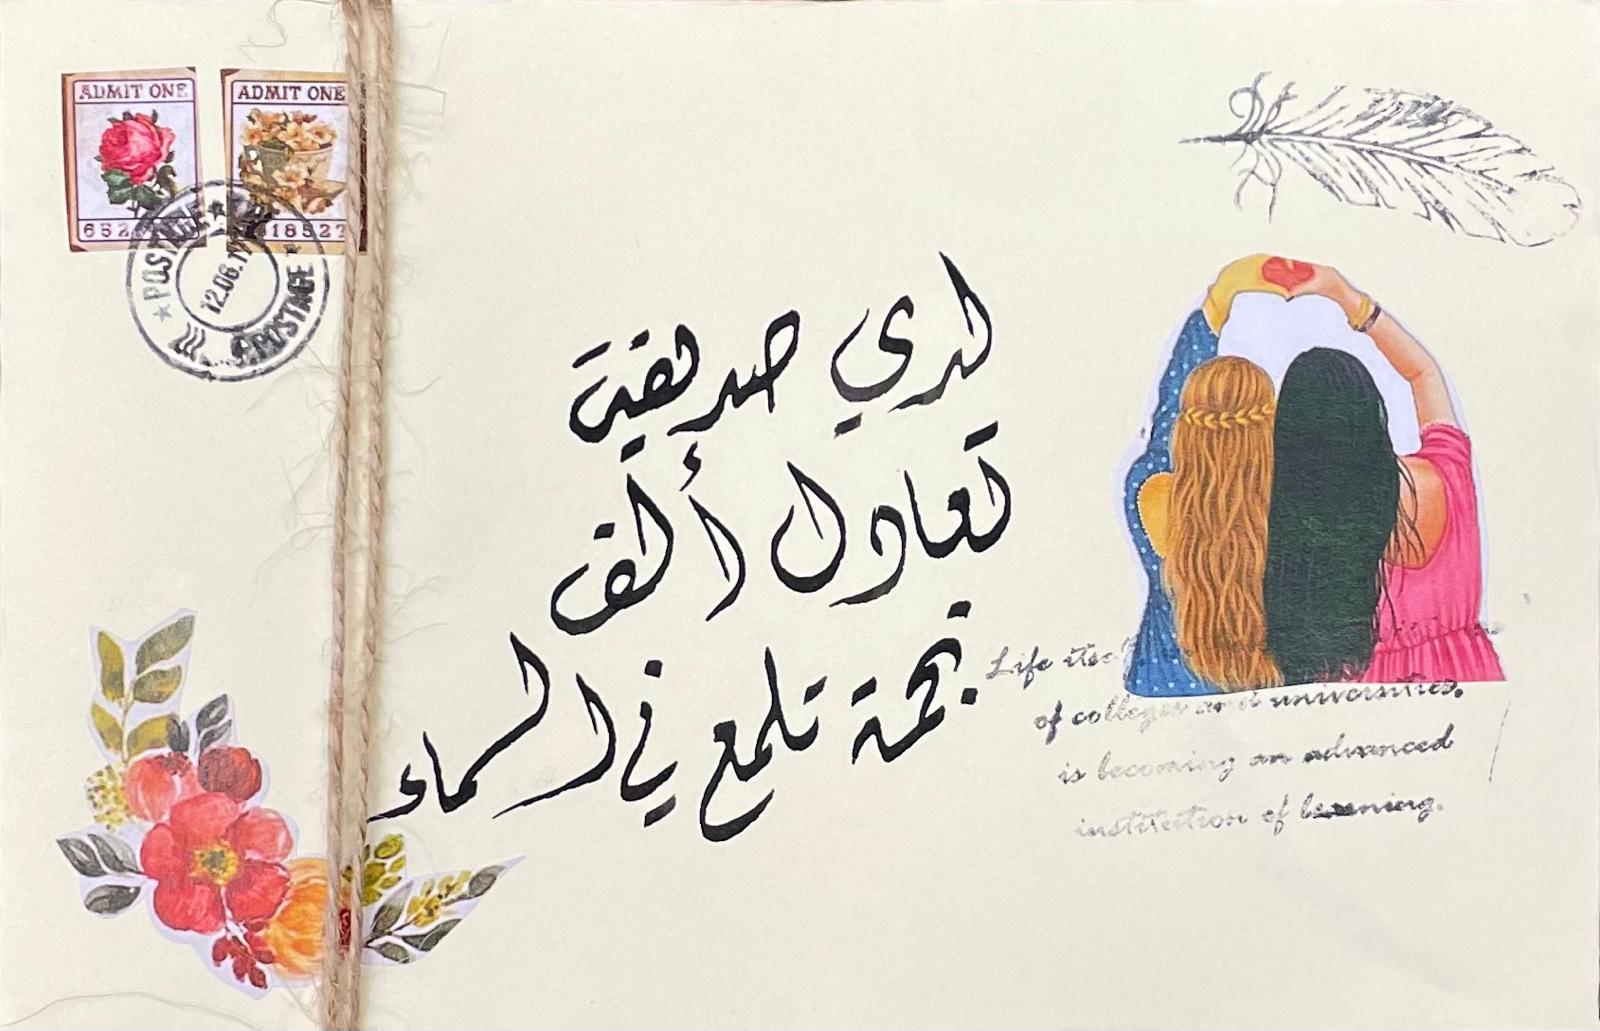 ADMIT ONE
ADMIT ONE
POSTAGE
12.06.1
POSTAGE
لدي صديقة
تعادل ألف
نجمة تلمع في السماء
Life itself
of colleges and universities.
is becoming an advanced
institution of learning.